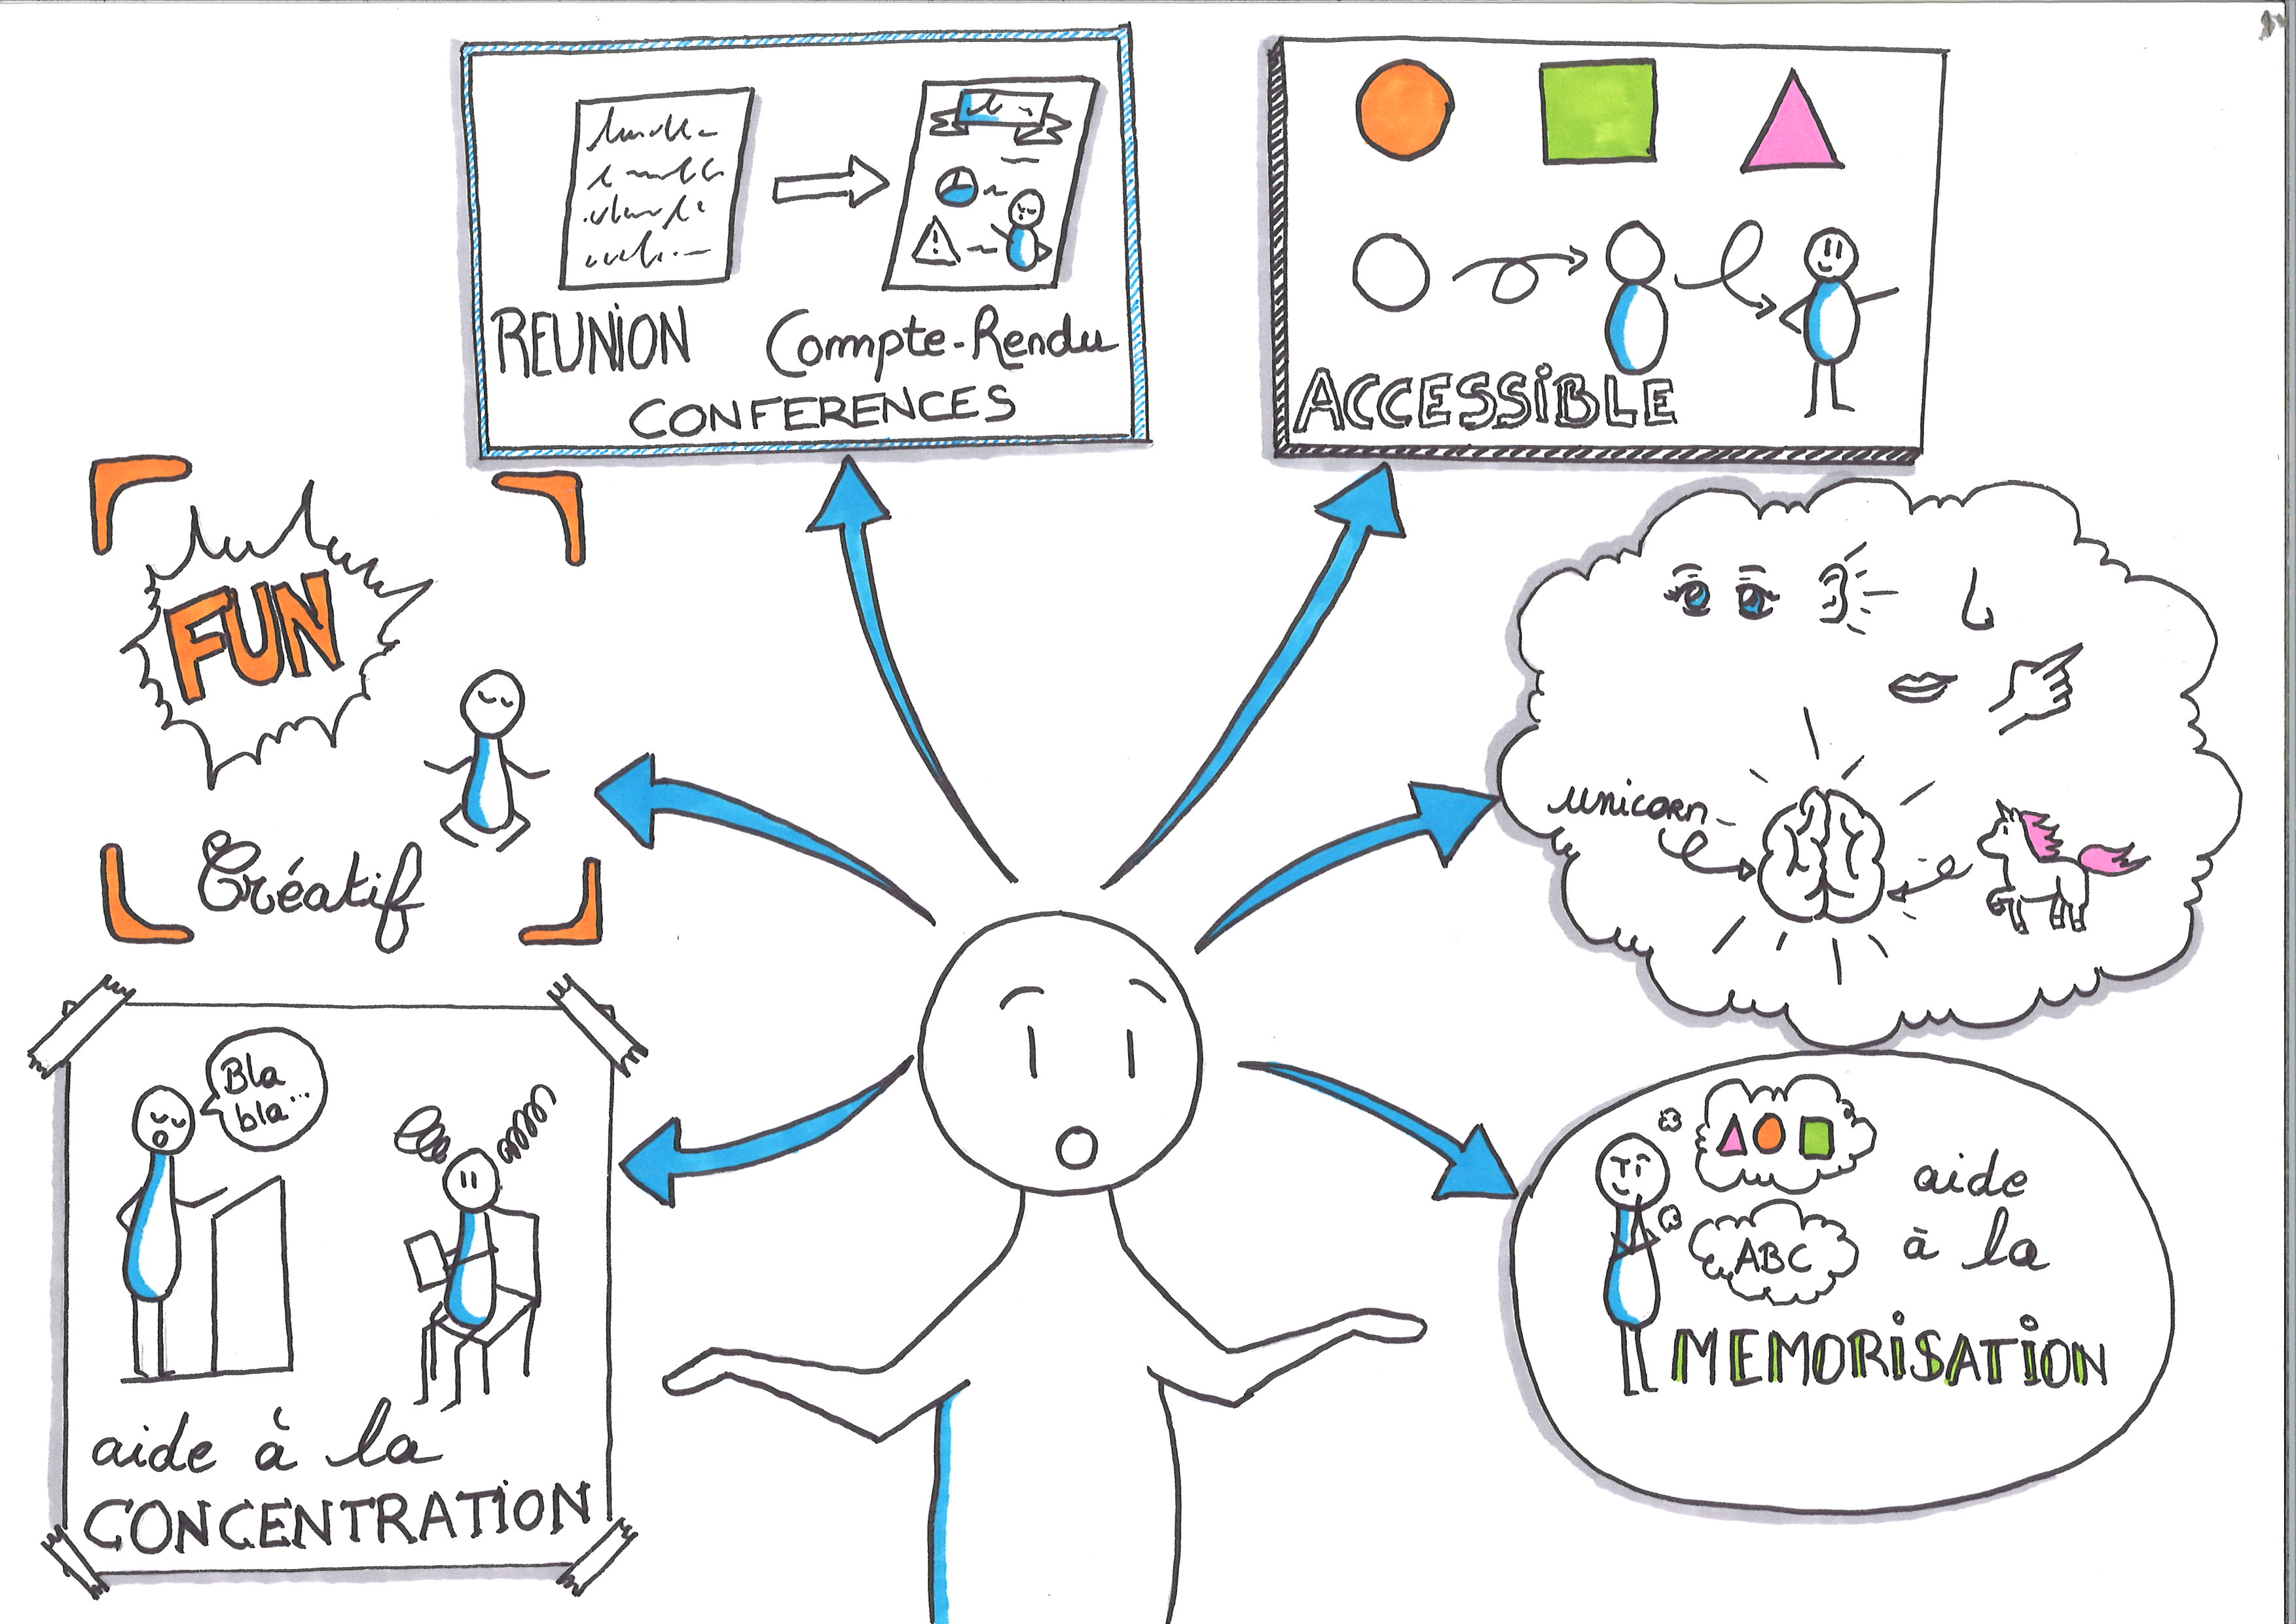 REUNION
Compte-Rendu
CONFERENCES
ACCESSiBLE
FUN
Créatif
unicorn
Bla
bla...
aide à la
CONCENTRATiON
ABC
aide
à la
MEMORiSATiON